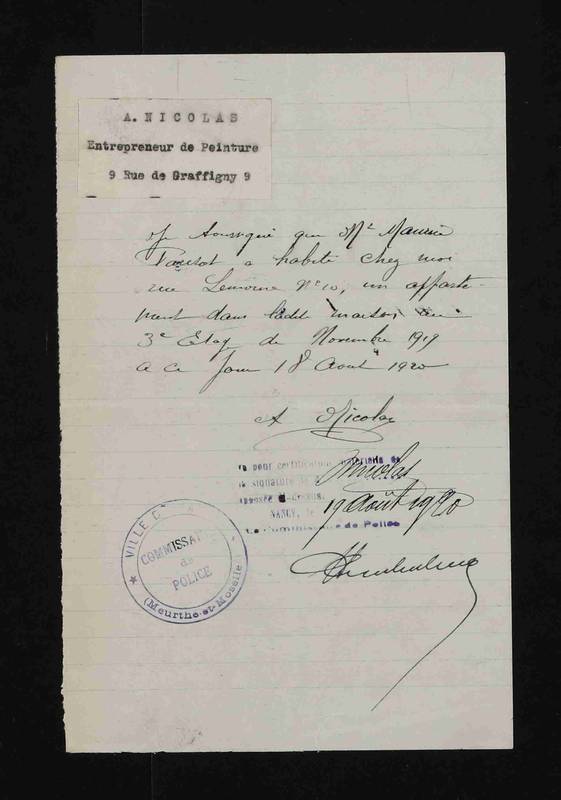 A. NICOLAS
Entrepreneur de Peinture
9 Rue de Graffigny 9
Je soussigné que Mr Maurice
a habité chez moi
rue Lemoine No 10, un apparte-
ment dans ladite maison au
3e Etag de Novembre 1919
a ce Jour 18 Aout 1920
A Nicolas
Vu pour certification matérielle de
la signature de Mr Nicolas
apposée ci-dessus.
NANCY, le 19 Août 1920
Le Commissaire de Police
VILLE D
COMMISSA
de
POLICE
(Meurthe-et-Moselle)